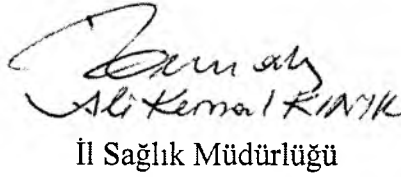 Ali Kemal KINIK
İl Sağlık Müdürlüğü